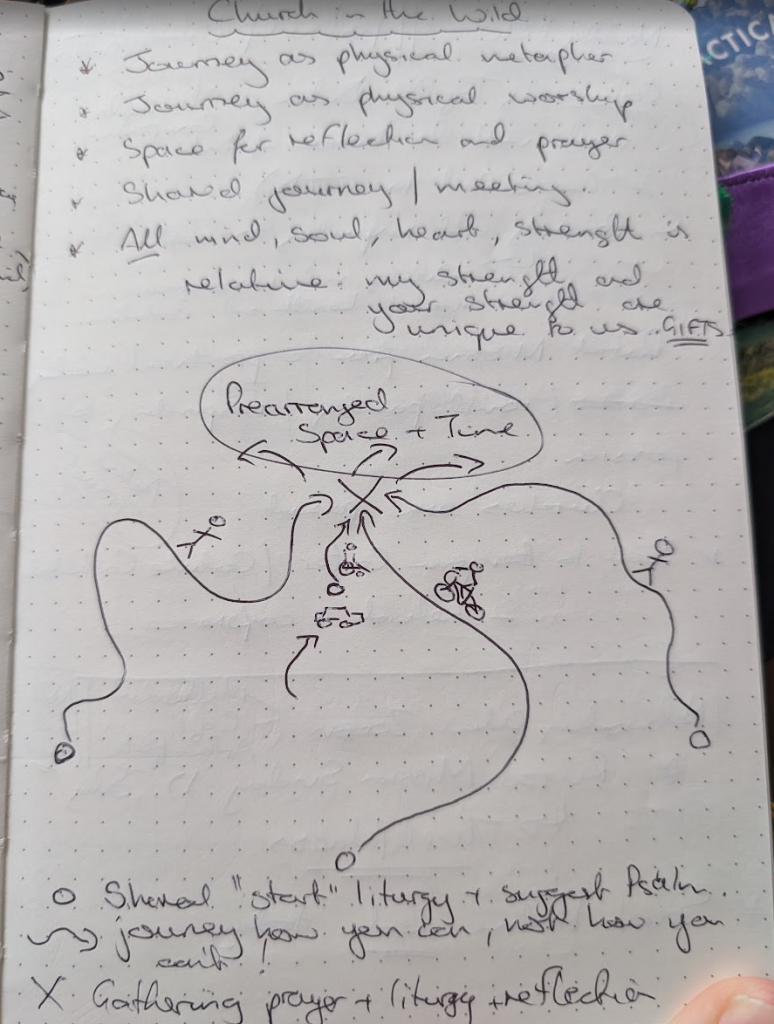 Church in the Wild
* Journey as physical metaphor
* Journey as physical worship
* Space for reflection and prayer
* Shared journey / meeting.
* All mind, soul, heart, strength is
relative: my strength and
your strength are
unique to us. GIFTS
Prearranged
Space + Time
O Shared "start" liturgy + suggest Psalm.
journey how you can, not how you
can't!
X Gathering prayer + liturgy + reflection
CTICA